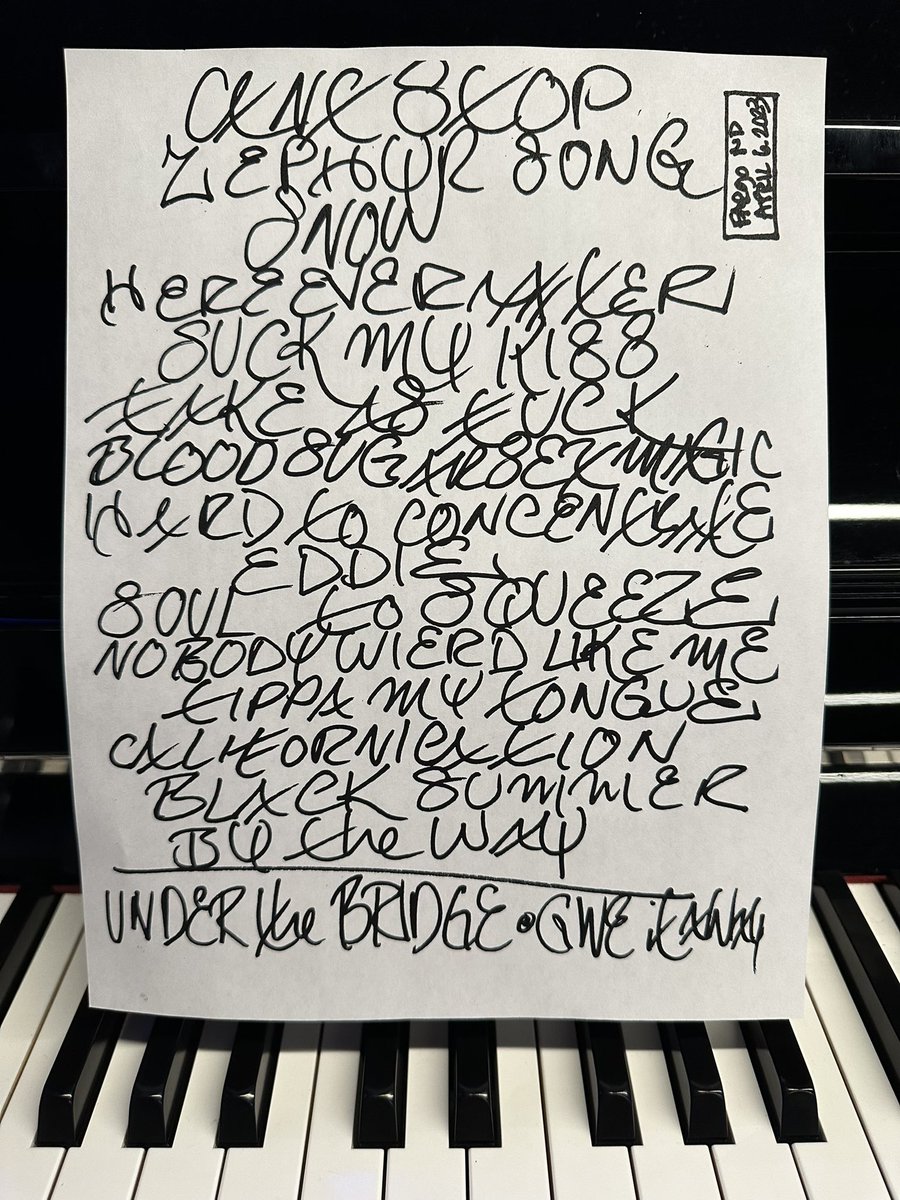 CANT STOP
ZEPHYR SONG
SNOW
HERE EVER AFTER
SUCK MY KISS
FARGO ND
APRIL 6. 2023
BLOOD SUGAR SEX MAGIC
HARD TO CONCENTRATE
EDDIE
SOUL TO SQUEEZE
NOBODY WIERD LIKE ME
TIPPA MY TONGUE
CALIFORNICATION
BLACK SUMMER
BY the WAY
UNDER the BRIDGE • GIVE IT AWAY